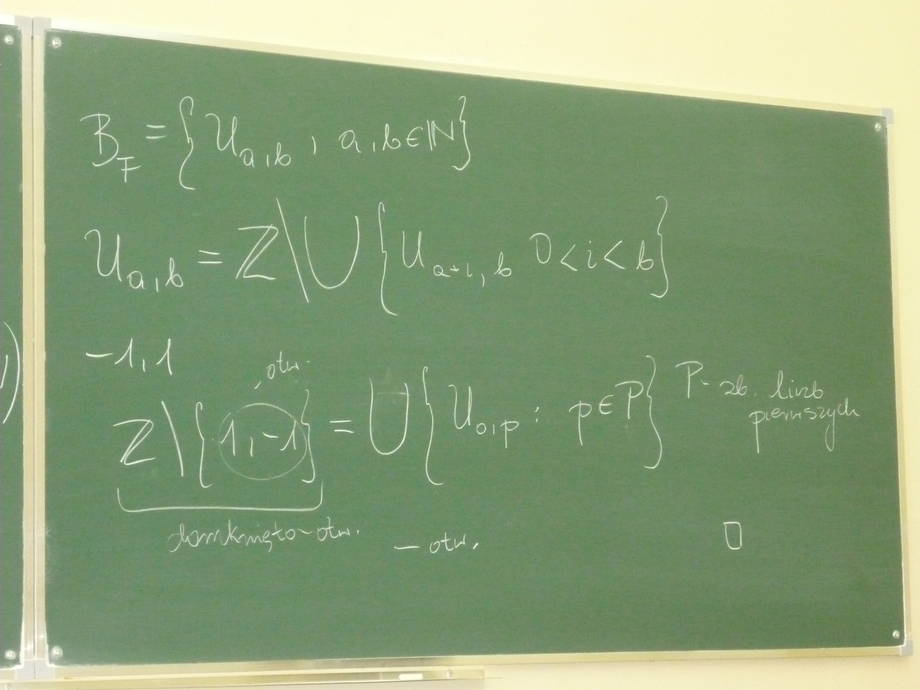 B_F = { U_{a,b} , a,b ∈ ℕ }
U_{a,b} = ℤ \ ⋃ { U_{a+i,b} 0 < i < b }
-1, 1
otw.
ℤ \ { 1, -1 } = ⋃ { U_{0,p} : p ∈ P } P - zb. liczb
pierwszych
domknięto-otw. - otw.
□